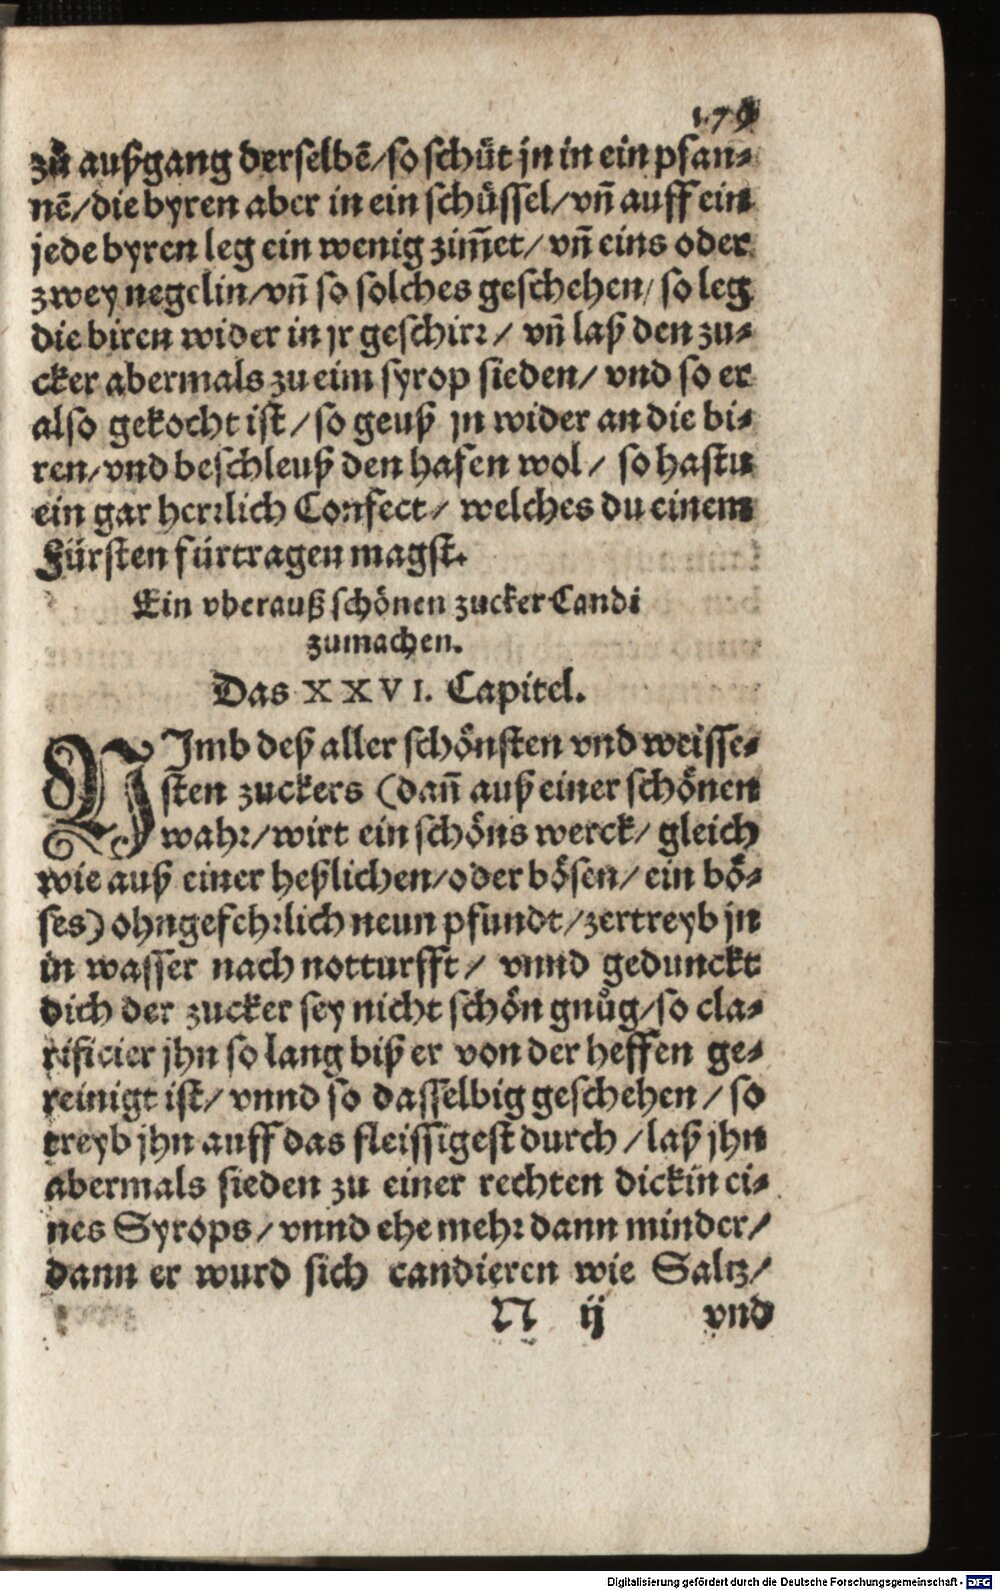 179
zů außgang derselbẽ/so schüt jn in ein pfan⸗
nẽ/die byren aber in ein schüssel/vñ auff ein
jede byren leg ein wenig zim̃et/vñ eins oder
zwey negelin/vñ so solches geschehen/so leg
die biren wider in jr geschirr/ vñ laß den zu⸗
cker abermals zu eim syrop sieden/ vnd so er
also gekocht ist/so geuß jn wider an die bi⸗
ren/vnd beschleuß den hafen wol/ so hastu
ein gar herrlich Confect/ welches du einem
Fürsten fürtragen magst.
Ein vberauß schönen zucker Candi
zumachen.
Das XXVI. Capitel.
NImb deß aller schönsten vnd weisse⸗
sten zuckers (dañ auß einer schönen
wahr/wirt ein schöns werck/ gleich
wie auß einer heßlichen/oder bösen/ein bö⸗
ses) ohngefehrlich neun pfundt/zertreyb jn
in wasser nach notturfft/ vnnd gedunckt
dich der zucker sey nicht schön gnůg/so cla⸗
rificier jhn so lang biß er von der heffen ge⸗
reinigt ist/ vnnd so dasselbig geschehen/so
treyb jhn auff das fleissigest durch/laß jhn
abermals sieden zu einer rechten dickin ei⸗
nes Syrops/vnnd ehe mehr dann minder/
dann er wurd sich candieren wie Saltz/
N ij vnd
Digitalisierung gefördert durch die Deutsche Forschungsgemeinschaft - DFG